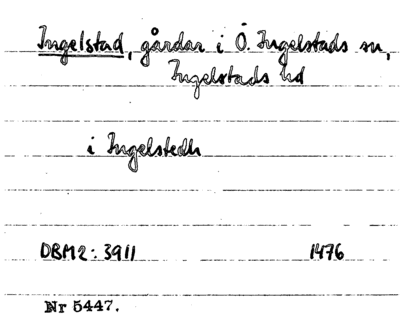 Ingelstad, gårdar i Ö. Ingelstads sn,
Ingelstads hd
i Ingelstedh
DBM2: 3911 1476
Nr 5447.